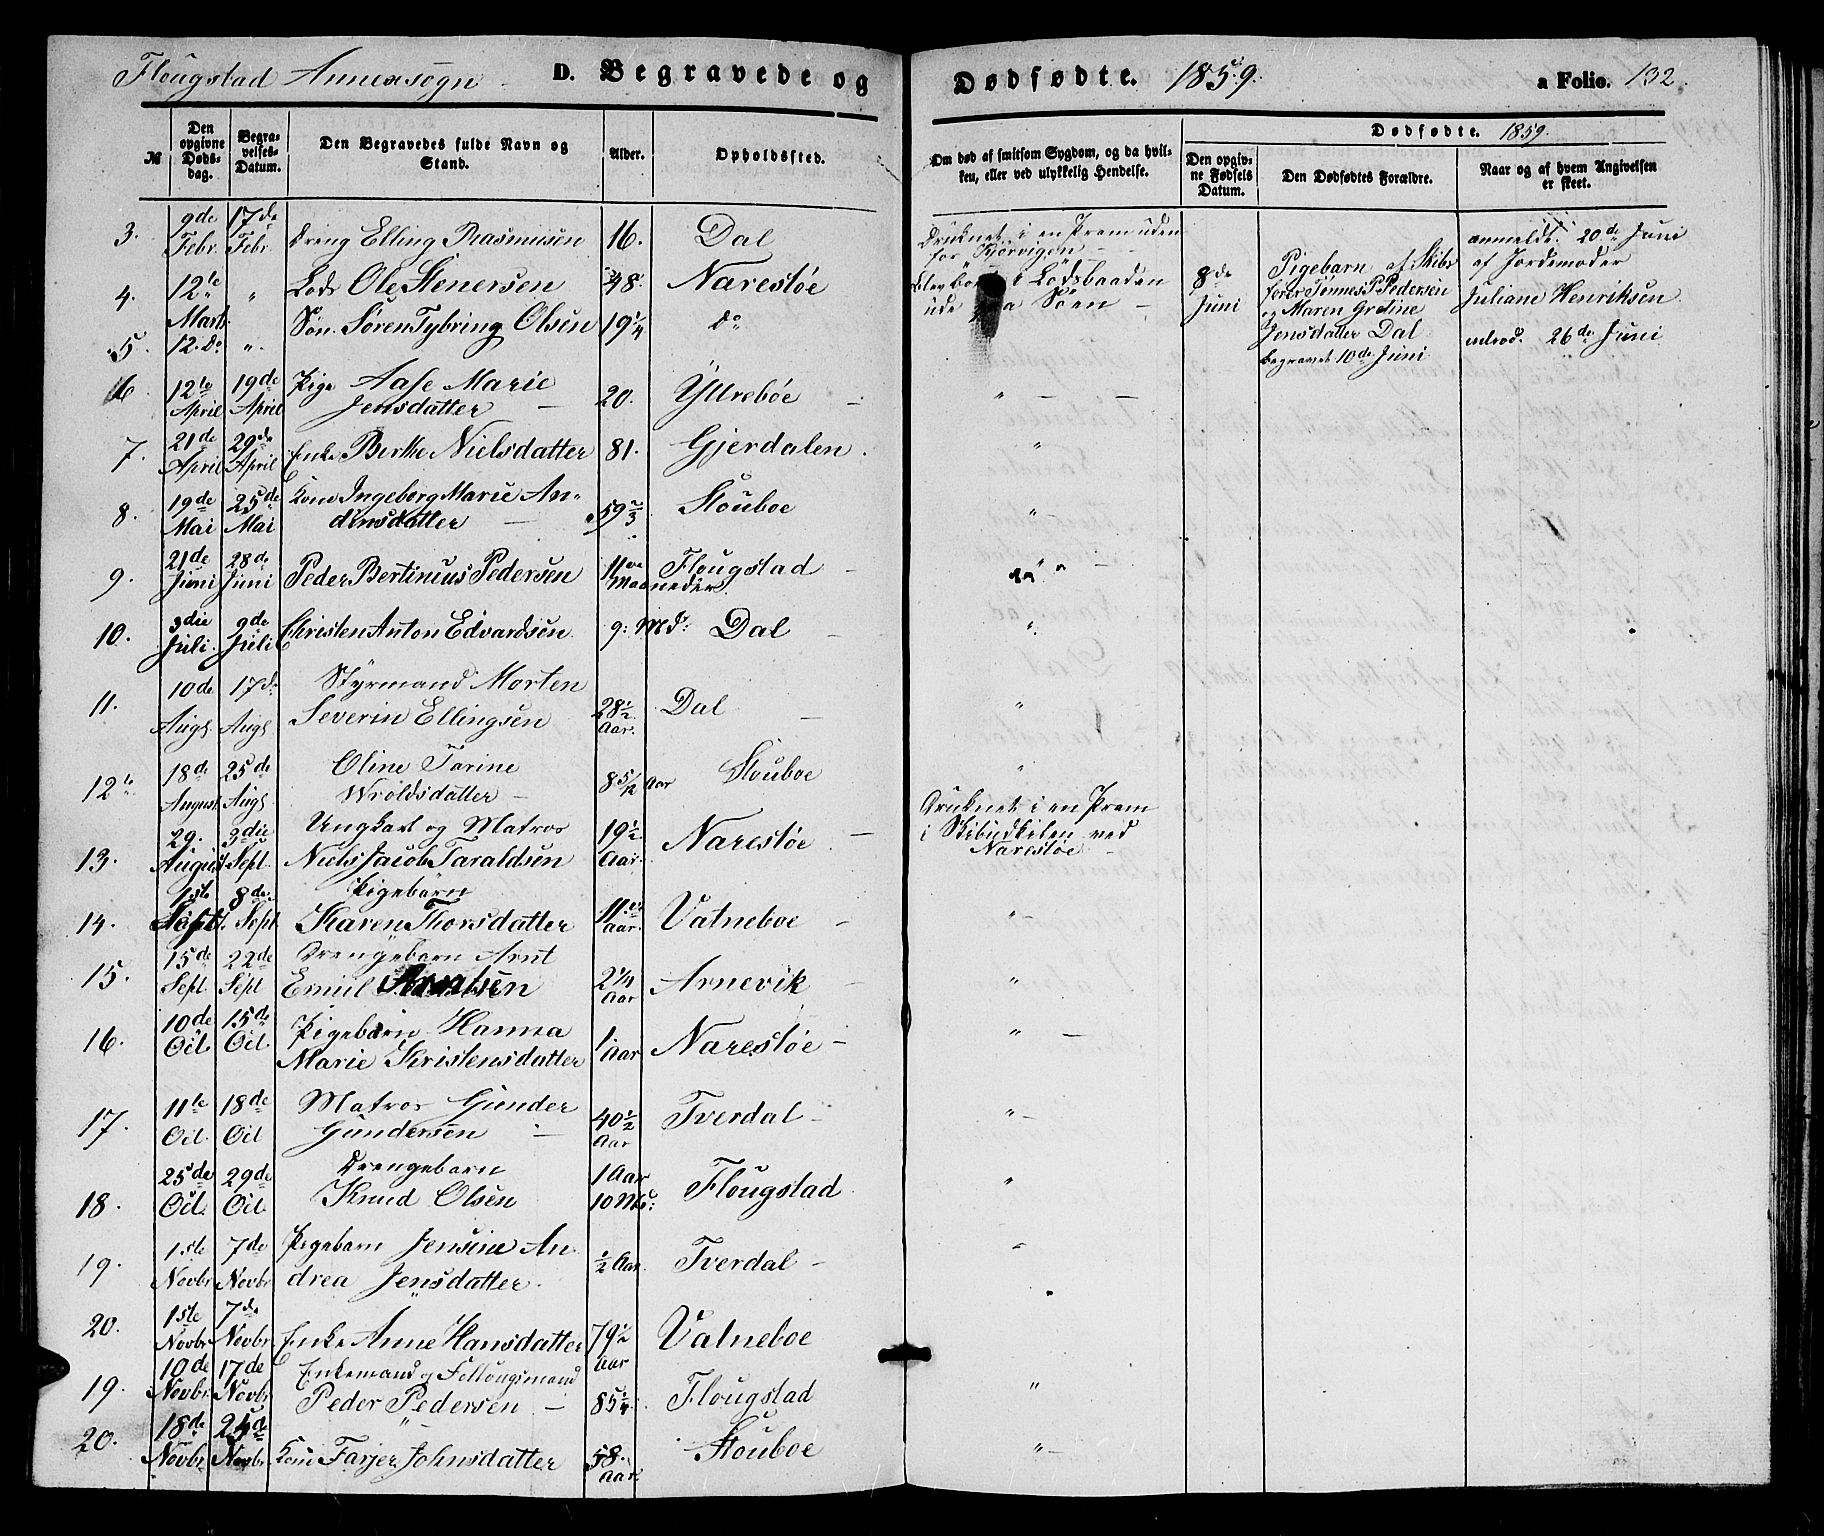 Flougstad Annexsogn D. Begravede og
№
Den opgivne Døds-dag.
Begra-velses-Datum.
Den Begravedes fulde Navn og Stand.
Alder.
Opholdssted.
3. 9de Febr. 17de Febr. Dreng Elling Rasmusen 16. Dal
4. 12te Marts " Lods Ole Stenersen 48. Narestøe
5. 12. Do ". Søn. Søren Tybring Olsen 19¼ do
6. 12te April 19de April Pige Aase Marie
Jensdatter 20. Yttrebøe
7. 21de April 29de April Enke Berthe Nielsdatter 81. Gjerdalen.
8. 19de Mai 25de Mai Kone Ingeborg Marie An-
dersdatter 59⅔ Stouboe
9. 21de Juni 28de Juni Peder Bertinius Pedersen 11ve Maaneder. Flougstad
10. 3die Juli. 9de Juli Christen Anton Edvardsen. 9: Md: Dal
11. 10de Augs. 17de Augs Styrmand Morten
Severin Ellingsen 28½ Aar. Dal
12te 18de August 25de Augs Oline Tarine
Wroldsdatter 8 5/12 Aar Stouboe
13. 29. August 3die Sept. Ungkarl og Matros
Niels Jacob Taraldsen 19½ Aar. Narestøe
14. 1ste Sept. 8de Sept Pigebarn
Karen Thorsdatter 11 Aar. Vatneboe
15. 15de Sept. 22de Sept Drengebarn Arnt
Emil Arntsen 2¼ Aar Arnevik
16. 10de Oct. 15de Oct. Pigebarn Hanna
Marie Kristensdatter 1 Aar Narestøe
17. 11te Oct. 18de Oct Matros Gunder
Gundersen 40½ Aar Tverdal
18. 25de Oct. 29de Oct. Drengebarn
Knud Olsen 1 Aar 10 Md: Flougstad
19. 1ste Novbr 7de Novbr Pigebarn Jensine An-
drea Jensdatter. ½ Aar. Tverdal
20. 1ste Novbr 7de Novbr Enke Anne Hansdatter 79½ Aar Vatneboe
19. 10de Novbr. 17de Novbr. Enkemand og
Peder Pedersen 85¼ Flougstad
20. 18de Novbr. Novbr. Kone Tarjer Johnsdatter 58. Aar. Stouboe
Dødfødte. 1859. a Folio. 132.
Om død af smitsom Sygdom, og da hvil-ken, eller ved ulykkelig Hendelse.
Dødfødte. 1859.
Den opgiv-ne Fødsels Datum.
Den Dødfødtes Forældre.
Naar og af hvem Angivelsen er skeet.
Druknet i en Pram uden
for
i Lodsbaaden
ude Søen
8de Juni
Pigebarn af Skibs
fører Tønnes P. Pedersen
og Maren Gretine
Jensdatter Dal
begravet 10de Juni
anmeldt. 20de Juni
af Jordemoder
Juliane Henriksen
26de Juni
Druknet i en Pram
i Skibudkilen ved
Narestøe